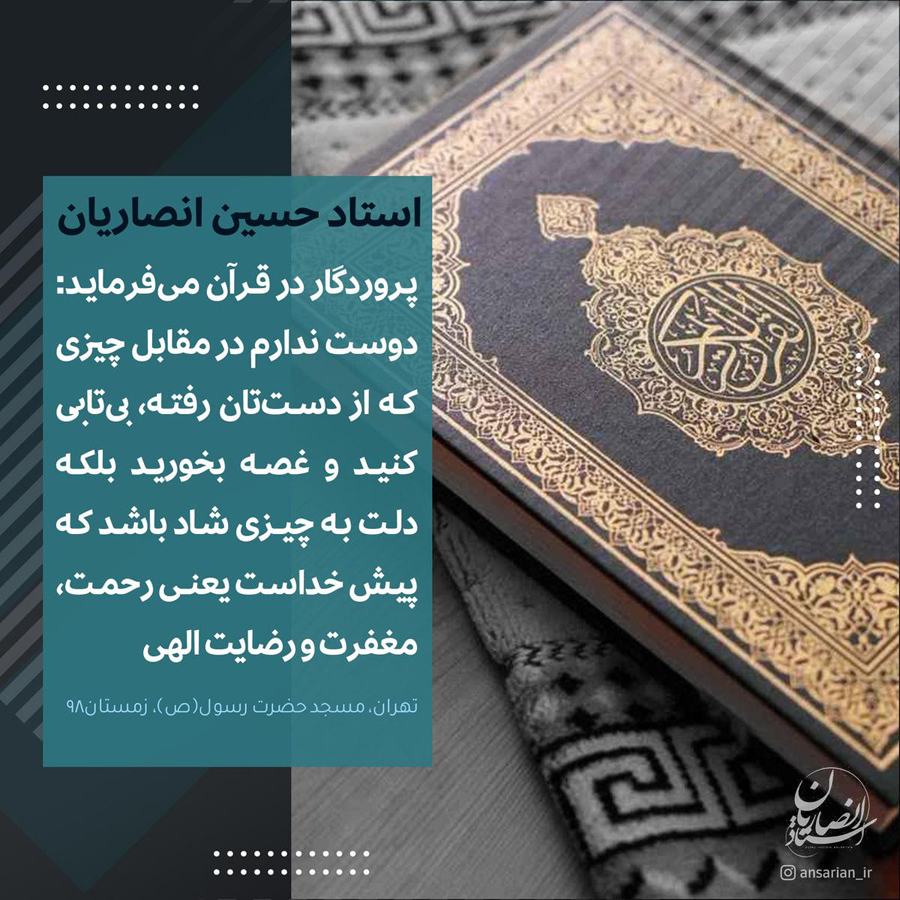 استاد حسین انصاریان
پروردگار در قرآن می‌فرماید:
دوست ندارم در مقابل چیزی
که از دست‌تان رفته، بی‌تابی
کنید و غصه بخورید بلکه
دلت به چیزی شاد باشد که
پیش خداست یعنی رحمت،
مغفرت و رضایت الهی
تهران، مسجد حضرت رسول(ص)، زمستان۹۸
قرآن کریم
استاد انصاریان
ansarian_ir